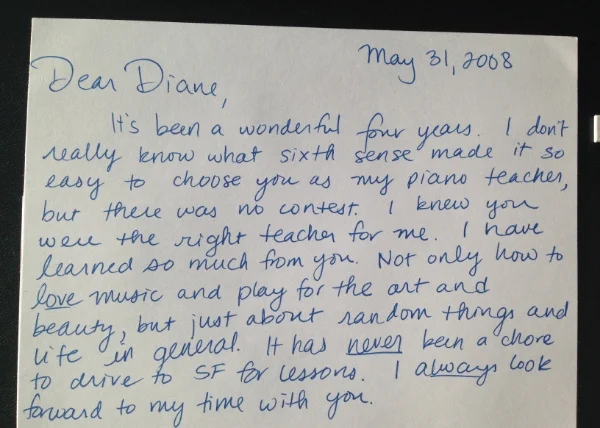 May 31, 2008
Dear Diane,
It's been a wonderful four years. I don't
really know what sixth sense made it so
easy to choose you as my piano teacher,
but there was no contest. I knew you
were the right teacher for me. I have
learned so much from you. Not only how to
love music and play for the art and
beauty, but just about random things and
life in general. It has never been a chore
to drive to SF for lessons. I always look
forward to my time with you.